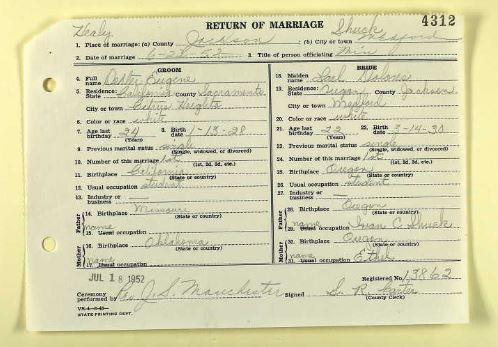 4312
Healy RETURN OF MARRIAGE Shuck
1. Place of marriage: (a) County Jackson (b) City or town Medford
2. Date of marriage 6-28-52 3. Title of person officiating Min
GROOM
4. Full Name Dexter Eugene
5. Residence: State California County Sacramento
City or town Citrus Heights
6. Color or race white
7. Age last birthday 24 (Years) 8. Birth date 1-13-28
9. Previous marital status single (Single, widowed, or divorced)
10. Number of this marriage 1st (1st, 2d, 3d, etc.)
11. Birthplace California (State or country)
12. Usual occupation student
13. Industry or business
Father 14. Birthplace Missouri (State or country)
name 15. Usual occupation
Mother 16. Birthplace Oklahoma (State or country)
name 17. Usual occupation
BRIDE
18. Maiden name
19. Residence: State Oregon County Jackson
City or town Medford
20. Color or race white
21. Age last birthday 22 (Years) 22. Birth date 3-14-30
23. Previous marital status single (Single, widowed, or divorced)
24. Number of this marriage 1st (1st, 2d, 3d, etc.)
25. Birthplace Oregon (State or country)
26. Usual occupation student
27. Industry or business
Father 28. Birthplace Oregon (State or country)
name 29. Usual occupation Ivan C. Shuck
Mother 30. Birthplace Oregon (State or country)
name 31. Usual occupation Ethel
JUL 18 1952 Registered No. 13862
Ceremony performed by Rev. J. S. Manchester Signed S. R. Carter
(County Clerk)
STATE PRINTING DEPT.